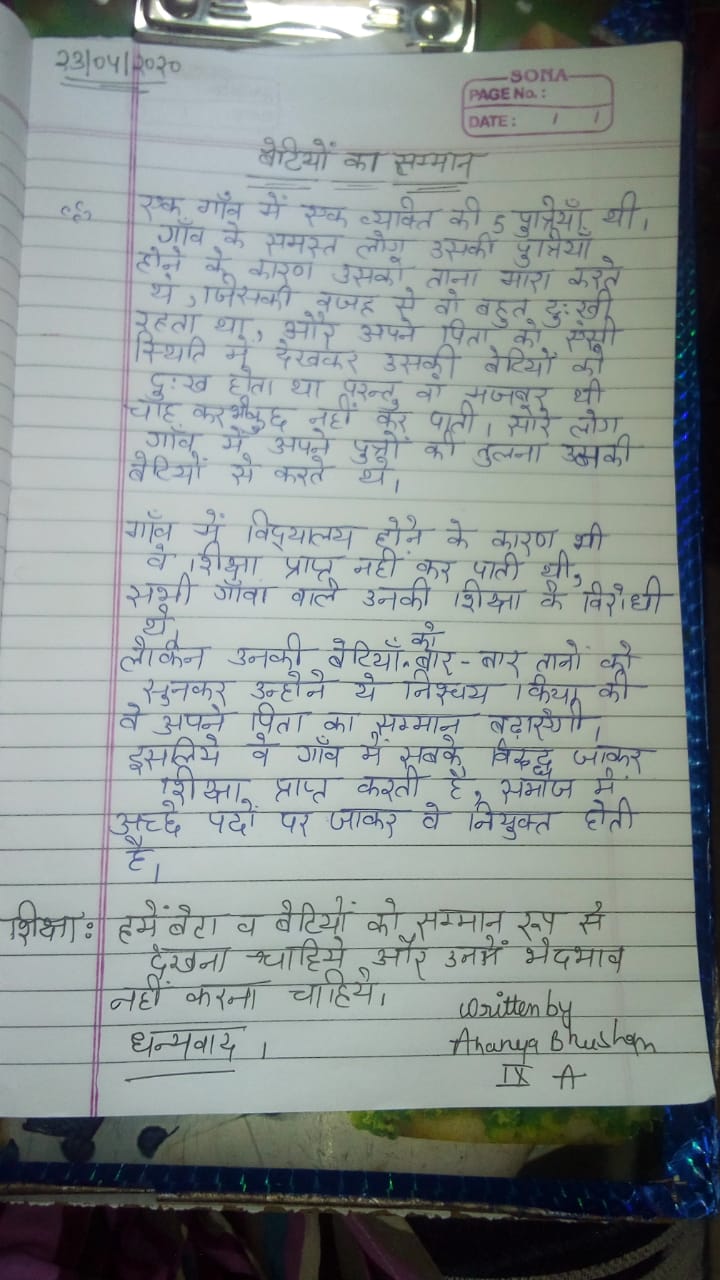 23/04/2020
SONA
PAGE No.:
DATE: / /
बेटियों का सम्मान
एक गाँव में एक व्यक्ति की 5 पुत्रियाँ थी।
गाँव के समस्त लोग उसकी पुत्रियाँ
होने के कारण उसको ताना मारा करते
थे, जिसकी वजह से वो बहुत दुःखी
रहता था, और अपने पिता को ऐसी
स्थिति में देखकर उसकी बेटियों को
दुःख होता था परन्तु वो मजबूर थी
चाह कर भी कुछ नहीं कर पाती। सारे लोग
गाँव में अपने पुत्रों की तुलना उसकी
बेटियों से करते थे।
गाँव में विद्यालय होने के कारण भी
वे शिक्षा प्राप्त नहीं कर पाती थी,
सभी गाँवा वाले उनकी शिक्षा के विरोधी
थे,
लेकिन उनकी बेटियाँ को बार-बार तानों को
सुनकर उन्होने ये निश्चय किया की
वे अपने पिता का सम्मान बढ़ाएगी।
इसलिये वे गाँव में सबके विरुद्ध जाकर
शिक्षा प्राप्त करती है, समाज में
अच्छे पदों पर जाकर वे नियुक्त होती
है।
शिक्षा: हमें बेटा व बेटियों को सम्मान रूप से
देखना चाहिये और उनमें भेदभाव
नहीं करना चाहिये।
धन्यवाद।
written by
Ananya Bhushan
IX A